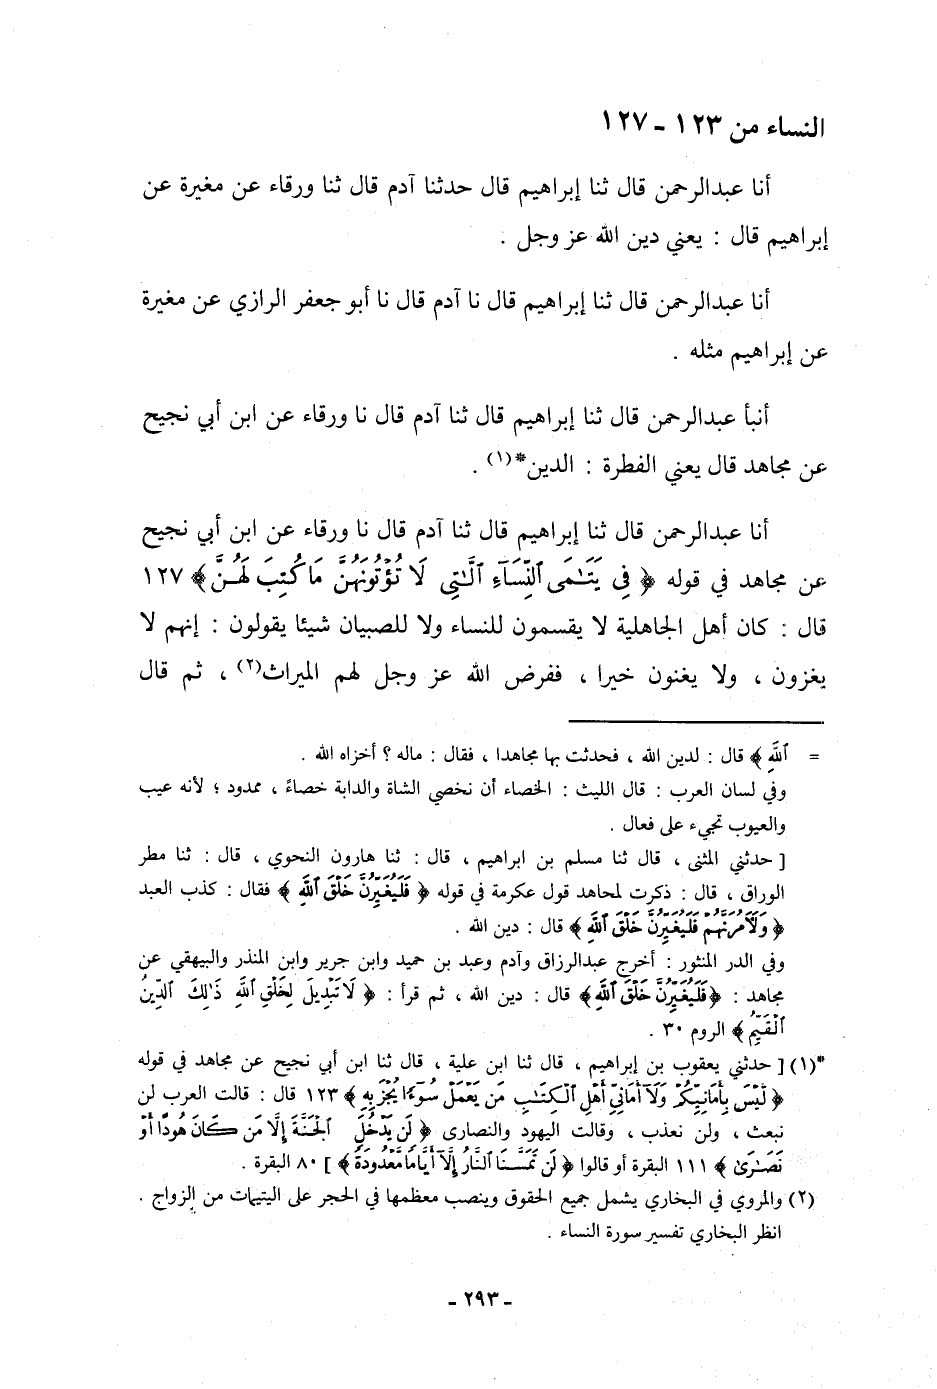 النساء من ١٢٣ - ١٢٧
أنا عبدالرحمن قال ثنا إبراهيم قال حدثنا آدم قال ثنا ورقاء عن مغيرة عن
إبراهيم قال : يعني دين الله عز وجل .
أنا عبدالرحمن قال ثنا إبراهيم قال نا آدم قال نا أبو جعفر الرازي عن مغيرة
عن إبراهيم مثله .
أنبأ عبدالرحمن قال ثنا إبراهيم قال ثنا آدم قال نا ورقاء عن ابن أبي نجيح
عن مجاهد قال يعني الفطرة : الدين*(١) .
أنا عبدالرحمن قال ثنا إبراهيم قال ثنا آدم قال نا ورقاء عن ابن أبي نجيح
عن مجاهد في قوله ﴿ فِى يَتَٰمَى ٱلنِّسَآءِ ٱلَّٰتِى لَا تُؤْتُونَهُنَّ مَا كُتِبَ لَهُنَّ ﴾ ١٢٧
قال : كان أهل الجاهلية لا يقسمون للنساء ولا للصبيان شيئا يقولون : إنهم لا
يغزون ، ولا يغنون خيرا ، ففرض الله عز وجل لهم الميراث(٢) ، ثم قال
= ٱللَّهِ ﴾ قال : لدين الله ، فحدثت بها مجاهدا ، فقال : ماله ؟ أخزاه الله .
وفي لسان العرب : قال الليث : الخصاء أن نخصي الشاة والدابة خصاءً ، ممدود ؛ لأنه عيب
والعيوب تجيء على فعال .
[ حدثني المثنى ، قال ثنا مسلم بن ابراهيم ، قال : ثنا هارون النحوي ، قال : ثنا مطر
الوراق ، قال : ذكرت لمجاهد قول عكرمة في قوله ﴿ فَلَيُغَيِّرُنَّ خَلْقَ ٱللَّهِ ﴾ فقال : كذب العبد
﴿ وَلَآمُرَنَّهُمْ فَلَيُغَيِّرُنَّ خَلْقَ ٱللَّهِ ﴾ قال : دين الله .
وفي الدر المنثور : أخرج عبدالرزاق وآدم وعبد بن حميد وابن جرير وابن المنذر والبيهقي عن
مجاهد : ﴿فَلَيُغَيِّرُنَّ خَلْقَ ٱللَّهِ﴾ قال : دين الله ، ثم قرأ : ﴿ لَا تَبْدِيلَ لِخَلْقِ ٱللَّهِ ذَٰلِكَ ٱلدِّينُ
ٱلْقَيِّمُ ﴾ الروم ٣٠ .
*(١) [ حدثني يعقوب بن إبراهيم ، قال ثنا ابن علية ، قال ثنا ابن أبي نجيح عن مجاهد في قوله
﴿ لَّيْسَ بِأَمَانِيِّكُمْ وَلَآ أَمَانِىِّ أَهْلِ ٱلْكِتَٰبِ مَن يَعْمَلْ سُوٓءًا يُجْزَ بِهِ ﴾ ١٢٣ قال : قالت العرب لن
نبعث ، ولن نعذب ، وقالت اليهود والنصارى ﴿ لَن يَدْخُلَ ٱلْجَنَّةَ إِلَّا مَن كَانَ هُودًا أَوْ
نَصَٰرَىٰ ﴾ ١١١ البقرة أو قالوا ﴿ لَن تَمَسَّنَا ٱلنَّارُ إِلَّآ أَيَّامًا مَّعْدُودَةً ﴾ ] ٨٠ البقرة .
(٢) والمروي في البخاري يشمل جميع الحقوق وينصب معظمها في الحجر على اليتيمات من الزواج .
انظر البخاري تفسير سورة النساء .
- ٢٩٣ -